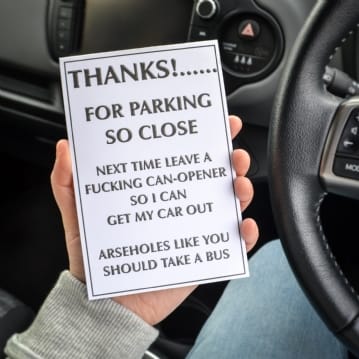 THANKS!.......
FOR PARKING
SO CLOSE
NEXT TIME LEAVE A
FUCKING CAN-OPENER
SO I CAN
GET MY CAR OUT
ARSEHOLES LIKE YOU
SHOULD TAKE A BUS